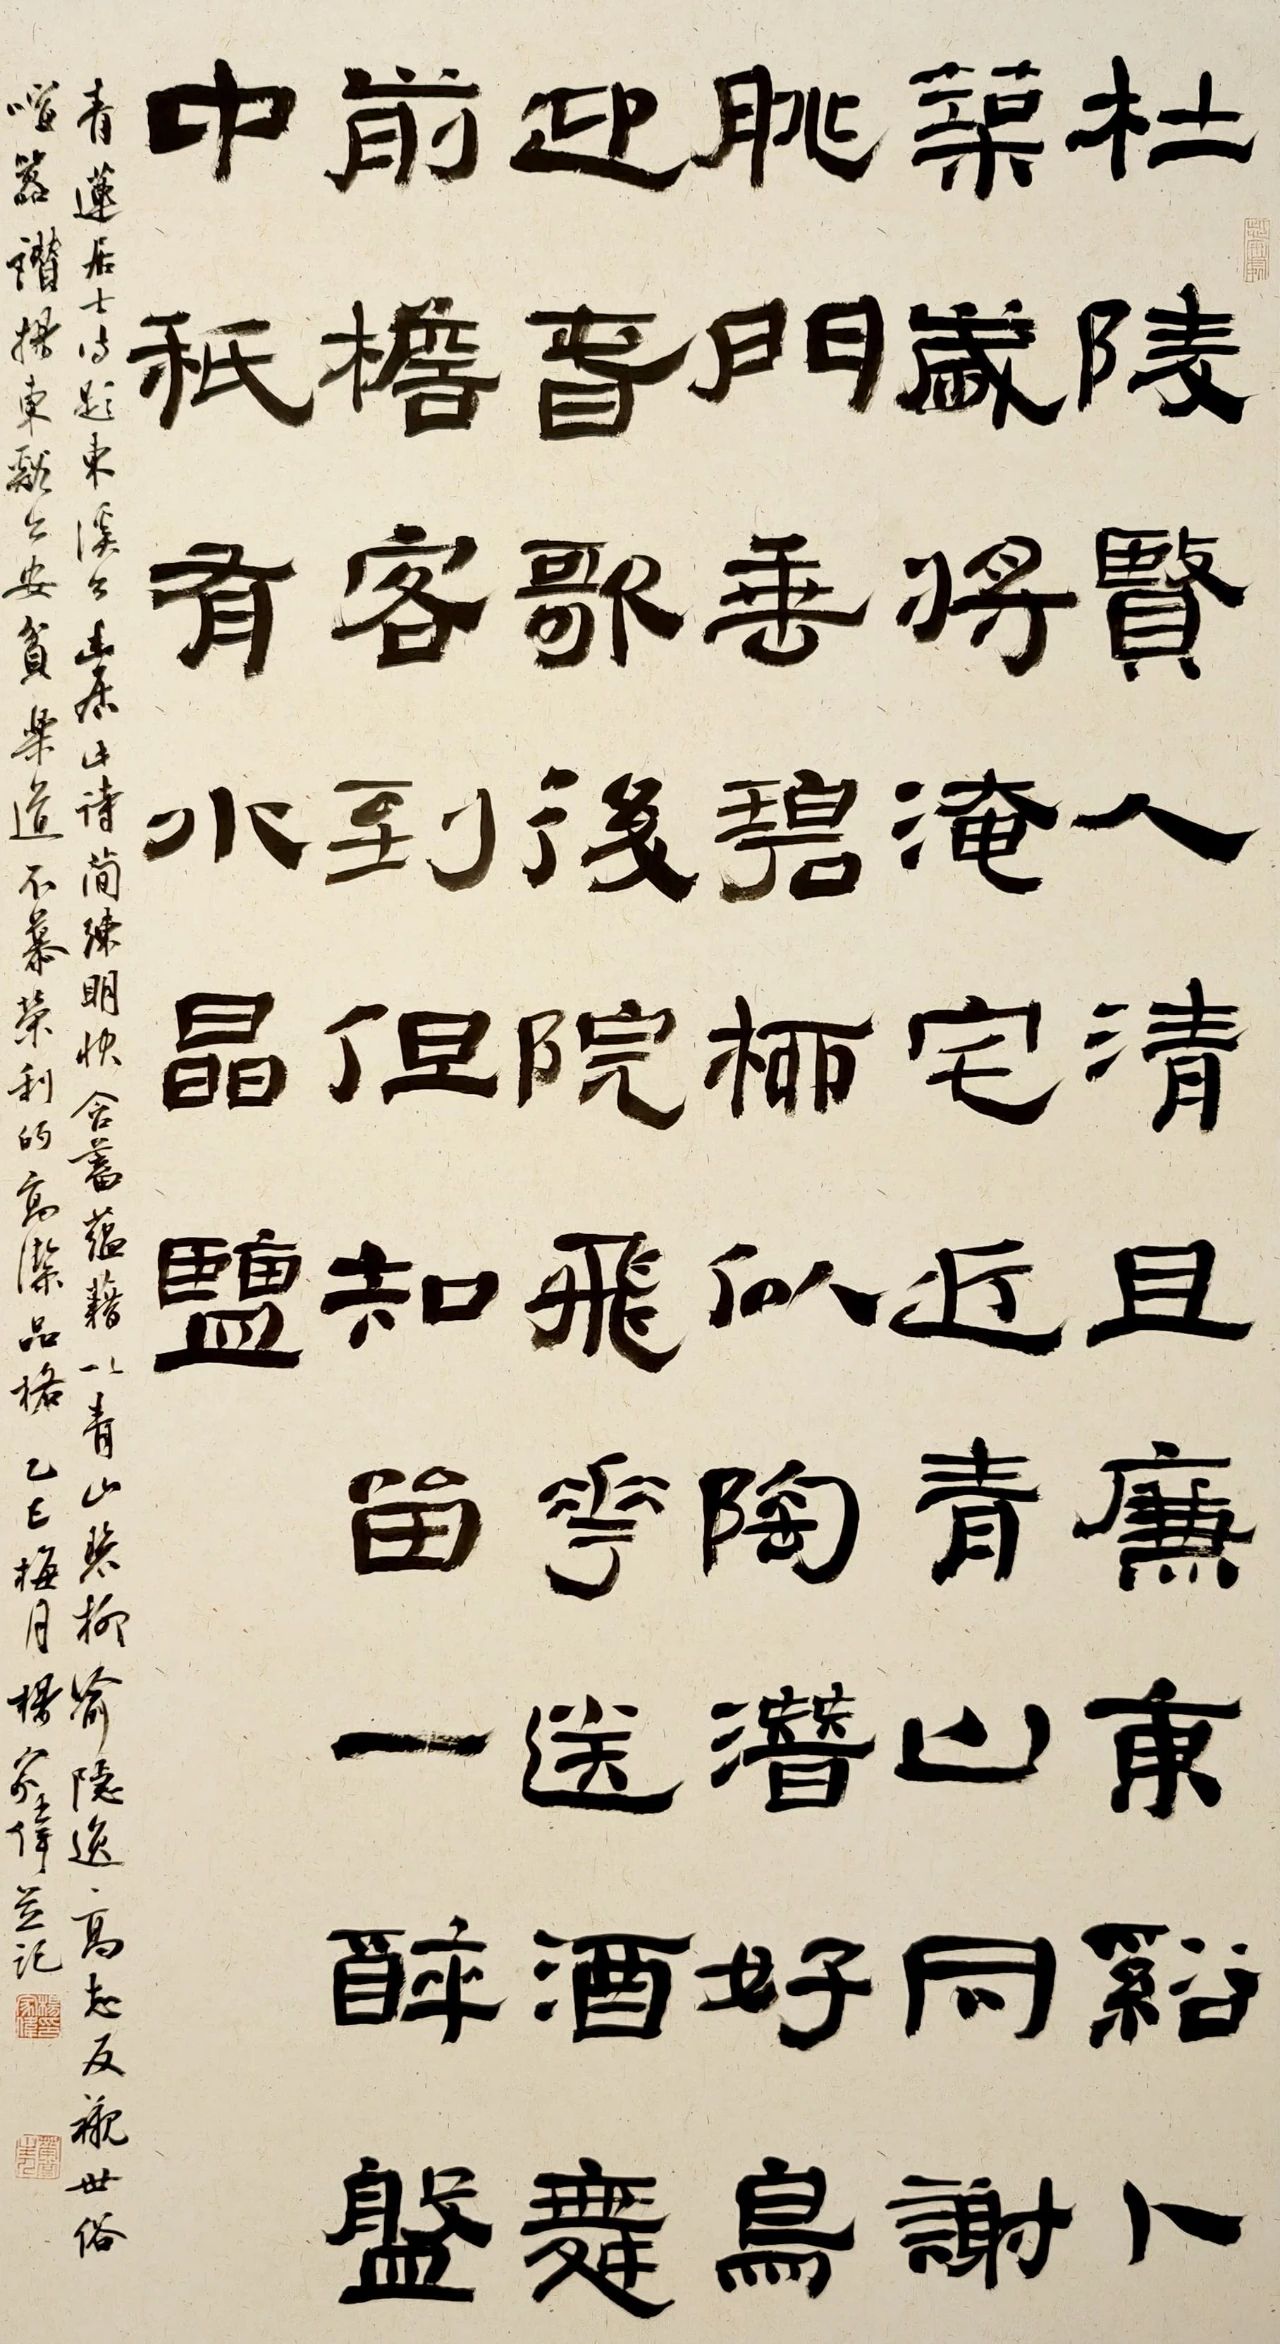 杜陵賢人清且廉東谿卜
築歲將淹宅近青山同謝
脁門垂碧柳似陶潛好鳥
迎春歌後院飛花送酒舞
前檐客到但知留一醉盤
中秖有水晶鹽
青蓮居士詩題東溪公幽居此詩簡練明快含蓄蘊藉以青山碧柳喻隱逸高志反襯世俗
喧囂讚揚東谿公安貧樂道不慕榮利的高潔品格 乙巳梅月楊家偉並記